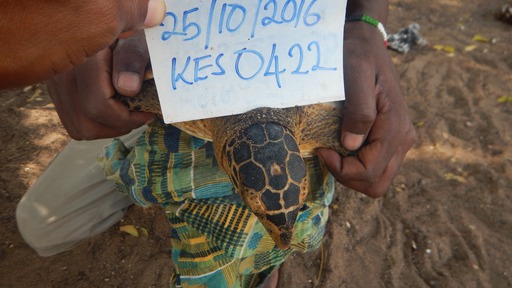 25/10/2016
KES0422